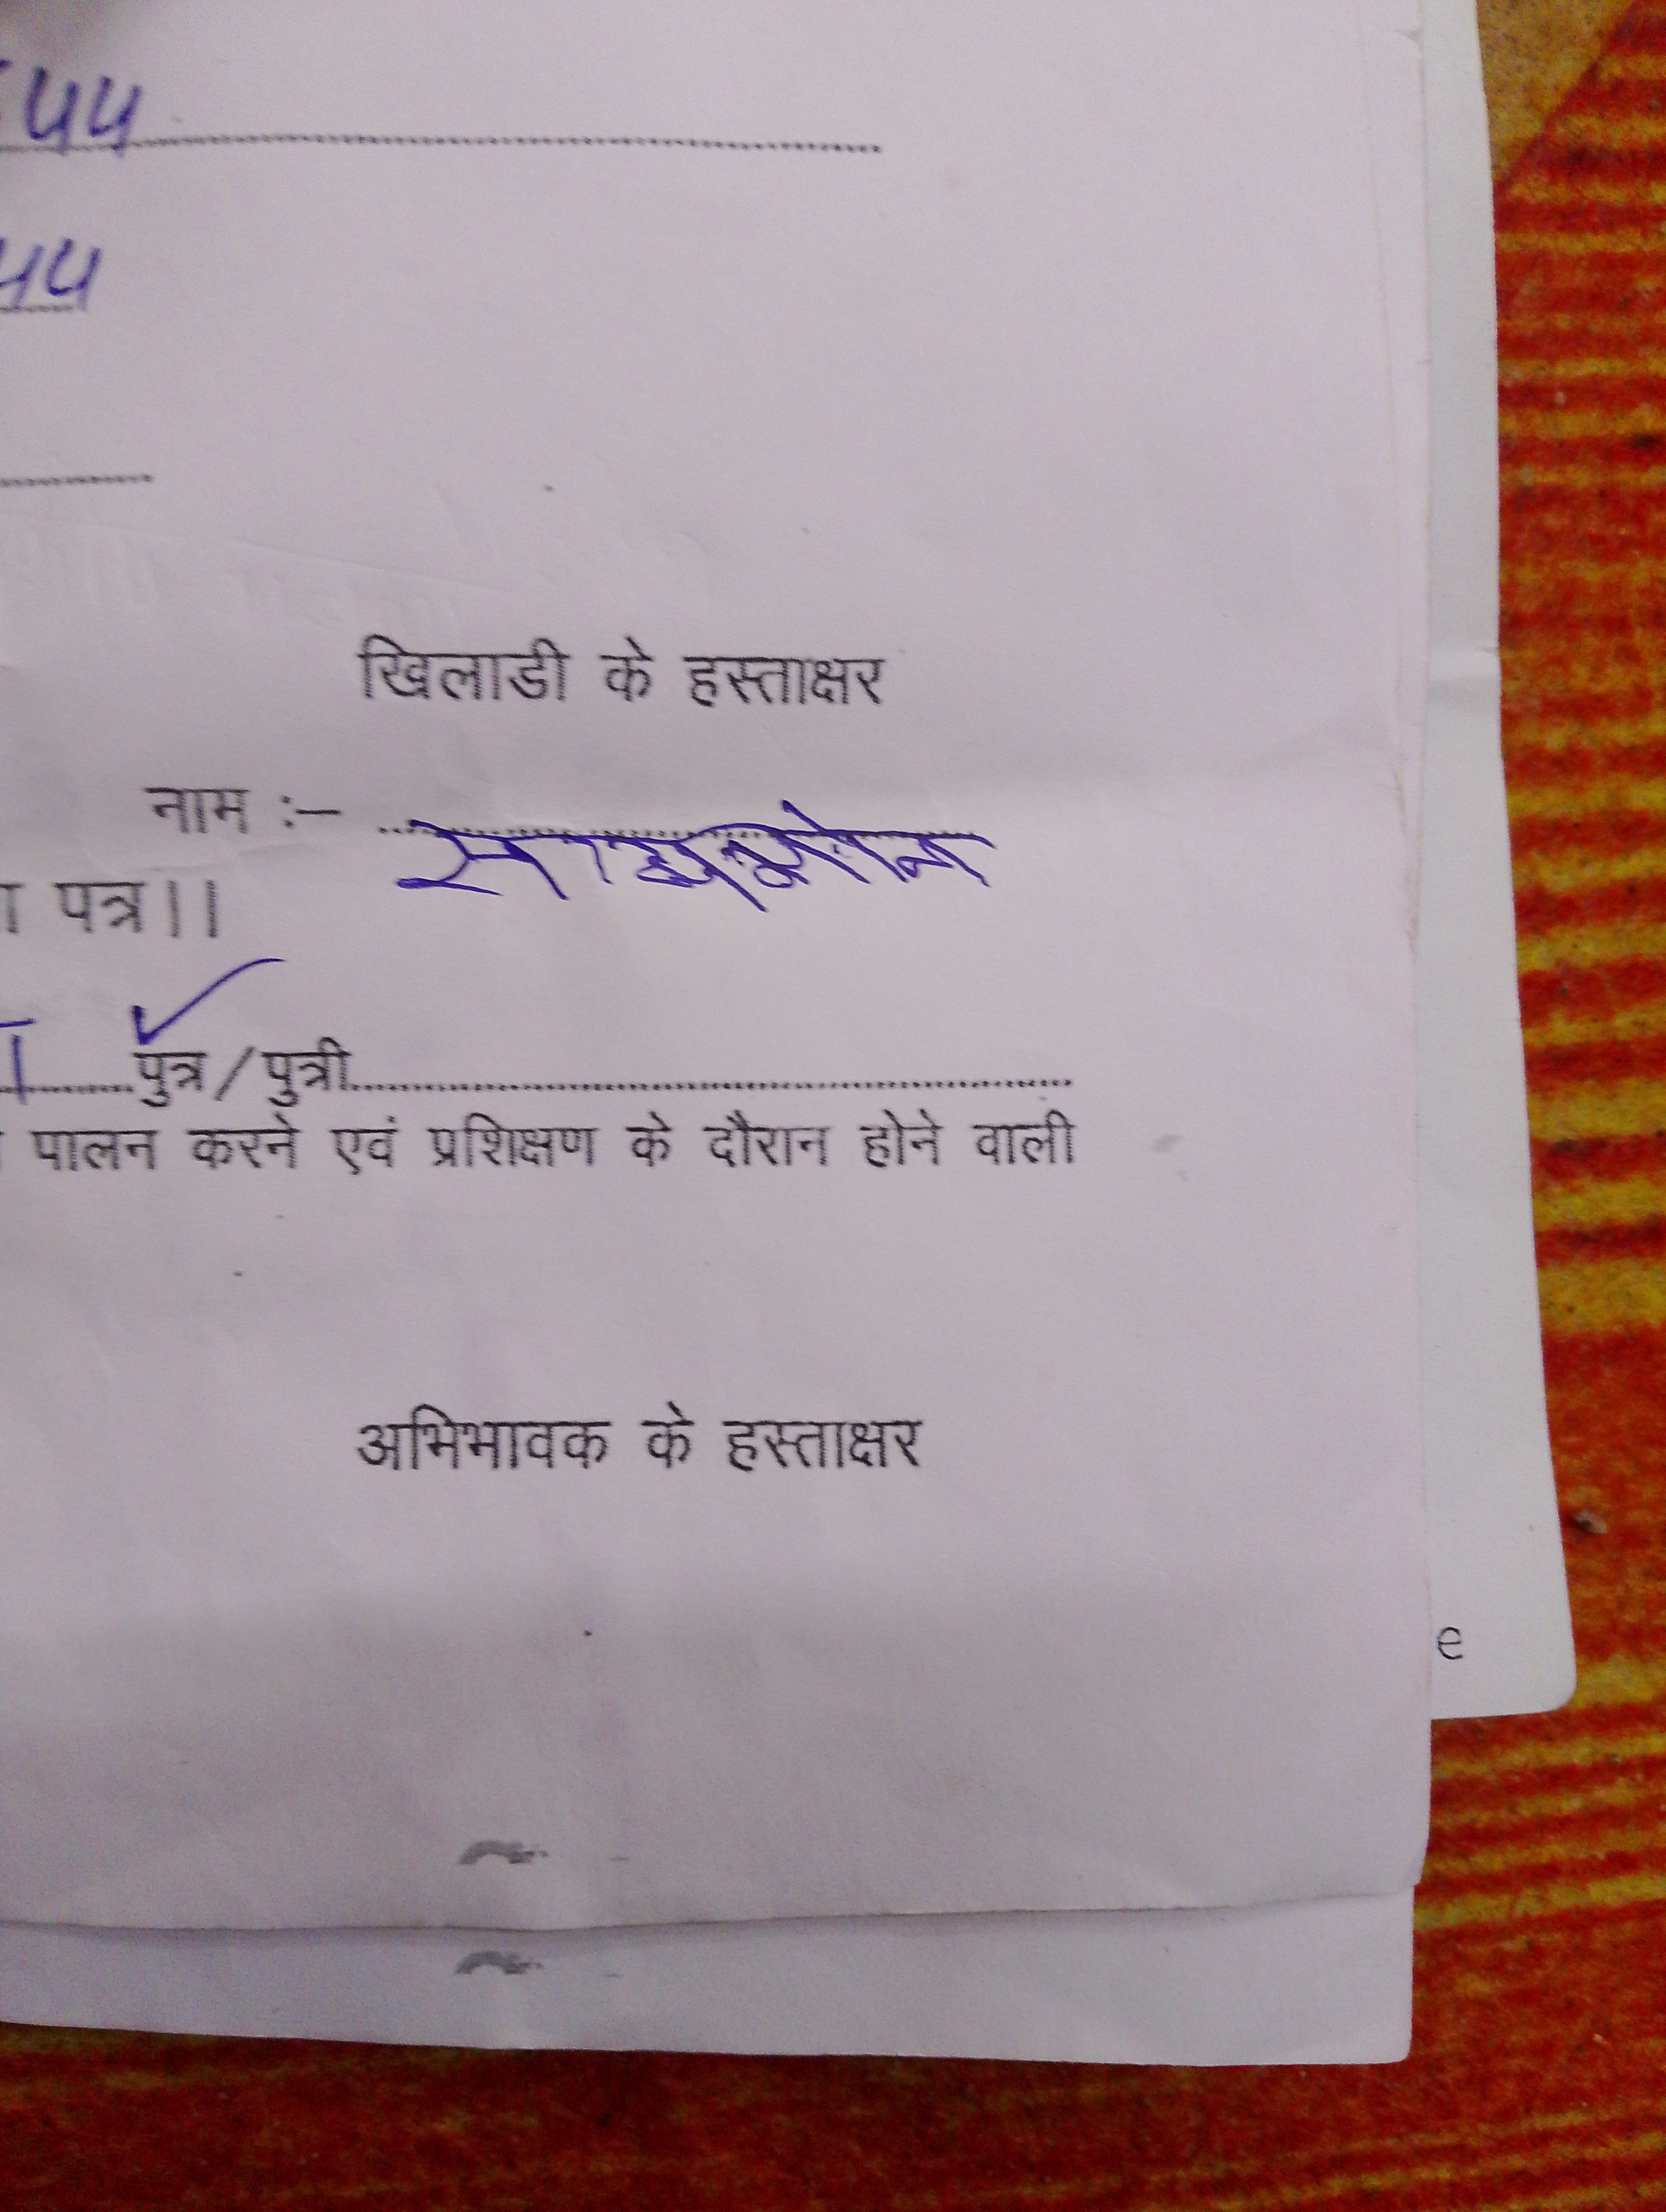 44
44
खिलाडी के हस्ताक्षर
नाम :–
पत्र।।
पुत्र/पुत्री
पालन करने एवं प्रशिक्षण के दौरान होने वाली
अभिभावक के हस्ताक्षर
e